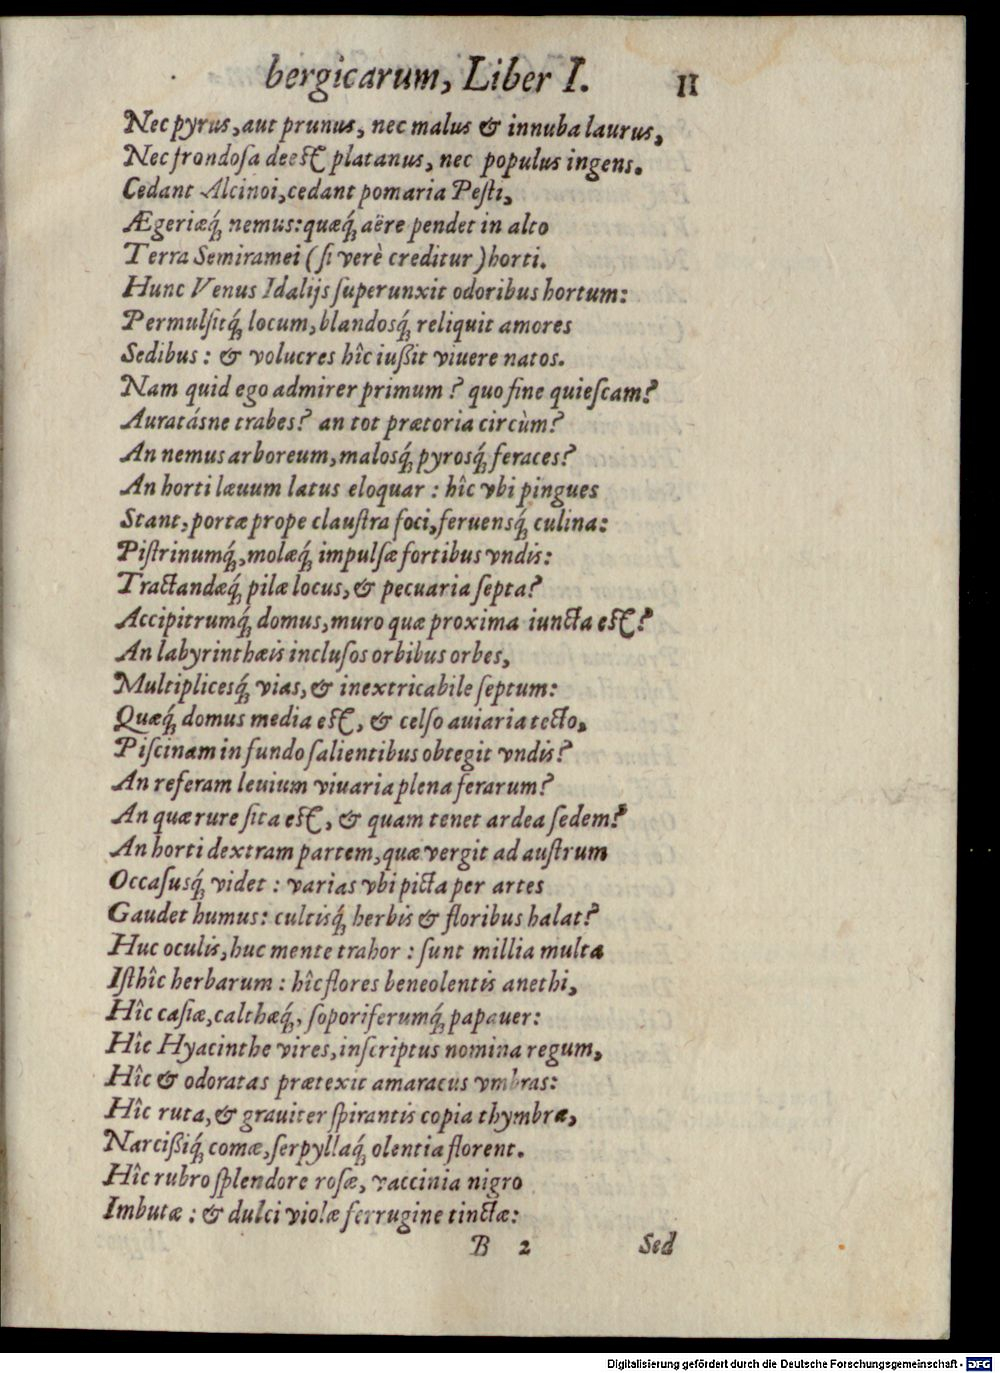 bergicarum, Liber I. 11
Nec pyrus, aut prunus, nec malus & innuba laurus,
Nec frondosa deest platanus, nec populus ingens.
Cedant Alcinoi, cedant pomaria Pesti,
Ægeriæq́; nemus: quæq́; aëre pendet in alto
Terra Semiramei (si verè creditur) horti.
Hunc Venus Idalijs superunxit odoribus hortum:
Permulsitq́; locum, blandosq́; reliquit amores
Sedibus: & volucres hîc iußit viuere natos.
Nam quid ego admirer primum? quo fine quiescam?
Auratásne trabes? an tot prætoria circùm?
An nemus arboreum, malosq́; pyrosq́; feraces?
An horti læuum latus eloquar: hîc vbi pingues
Stant, portæ prope claustra foci, feruensq́; culina:
Pistrinumq́;, molæq́; impulsæ fortibus vndis:
Tractandæq́; pilæ locus, & pecuaria septa?
Accipitrumq́; domus, muro quæ proxima iuncta est?
An labyrinthæis inclusos orbibus orbes,
Multiplicesq́; vias, & inextricabile septum:
Quæq́; domus media est, & celso auiaria tecto,
Piscinam in fundo salientibus obtegit vndis?
An referam leuium viuaria plena ferarum?
An quæ rure sita est, & quam tenet ardea sedem?
An horti dextram partem, quæ vergit ad austrum
Occasusq́; videt: varias vbi picta per artes
Gaudet humus: cultisq́; herbis & floribus halat?
Huc oculis, huc mente trahor: sunt millia multa
Isthîc herbarum: hîc flores beneolentis anethi,
Hîc casiæ, calthæq́;, soporiferumq́; papauer:
Hîc Hyacinthe vires, inscriptus nomina regum,
Hîc & odoratas prætexit amaracus vmbras:
Hîc ruta, & grauiter spirantis copia thymbræ,
Narcißiq́; comæ, serpyllaq́; olentia florent.
Hîc rubro splendore rosæ, vaccinia nigro
Imbutæ: & dulci violæ ferrugine tinctæ:
B 2 Sed
Digitalisierung gefördert durch die Deutsche Forschungsgemeinschaft - DFG